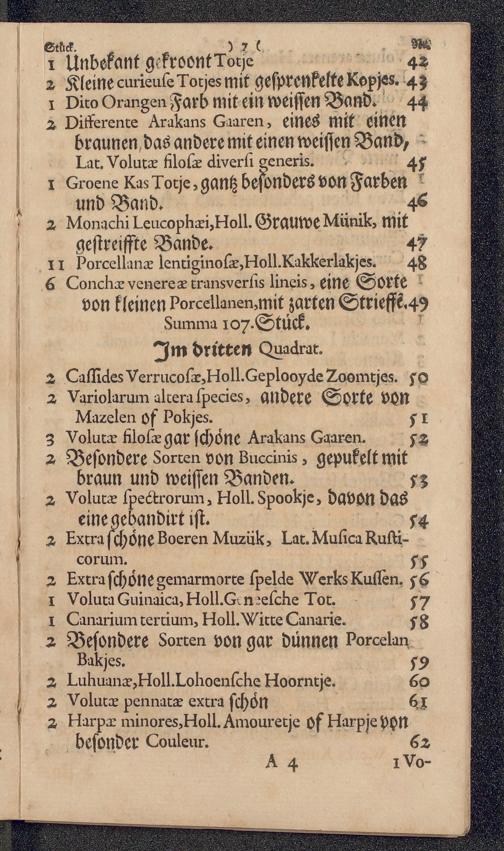 Stück. ) 7 ( No.
1 Unbekant gekroont Totje 42
2 Kleine curieuse Totjes mit gesprenkelte Kopjes. 43
1 Dito Orangen Farb mit ein weissen Band. 44
2 Differente Arakans Gaaren, eines mit einen
braunen, das andere mit einen weissen Band,
Lat. Volutæ filosæ diversi generis. 45
1 Groene Kas Totje, gantz besonders von Farben
und Band. 46
2 Monachi Leucophæi, Holl. Grauwe Münik, mit
gestreiffte Bande. 47
11 Porcellanæ lentiginosæ, Holl. Kakkerlakjes. 48
6 Conchæ venereæ transversis lineis, eine Sorte
von kleinen Porcellanen, mit zarten Strieffē. 49
Summa 107. Stück.
Im dritten Quadrat.
2 Cassides Verrucosæ, Holl. Geplooyde Zoomtjes. 50
2 Variolarum altera species, andere Sorte von
Mazelen of Pokjes. 51
3 Volutæ filosæ gar schöne Arakans Gaaren. 52
2 Besondere Sorten von Buccinis, gepukelt mit
braun und weissen Banden. 53
2 Volutæ spectrorum, Holl. Spookje, davon das
eine gebandirt ist. 54
2 Extra schöne Boeren Muzük, Lat. Musica Rusti-
corum. 55
2 Extra schöne gemarmorte spelde Werks Kussen. 56
1 Voluta Guinaica, Holl. Geneesche Tot. 57
1 Canarium tertium, Holl. Witte Canarie. 58
2 Besondere Sorten von gar dünnen Porcelan
Bakjes. 59
2 Luhuanæ, Holl. Lohoensche Hoorntje. 60
2 Volutæ pennatæ extra schön 61
2 Harpæ minores, Holl. Amouretje of Harpje von
besonder Couleur. 62
A 4 1 Vo-